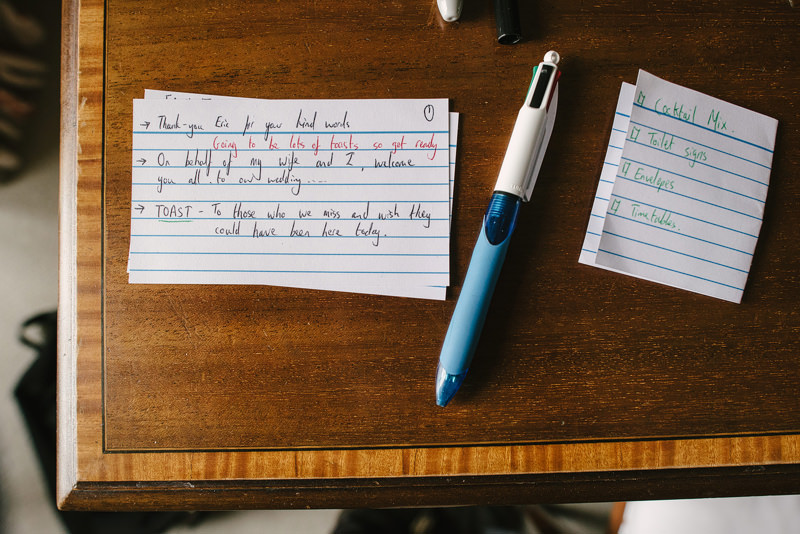 ①
→ Thank-you Eric for your kind words
Going to be lots of toasts so get ready
→ On behalf of my wife and I, welcome
you all to our wedding .....
→ TOAST - To those who we miss and wish they
could have been here today.
Cocktail Mix.
Toilet signs
Envelopes
Timetables.